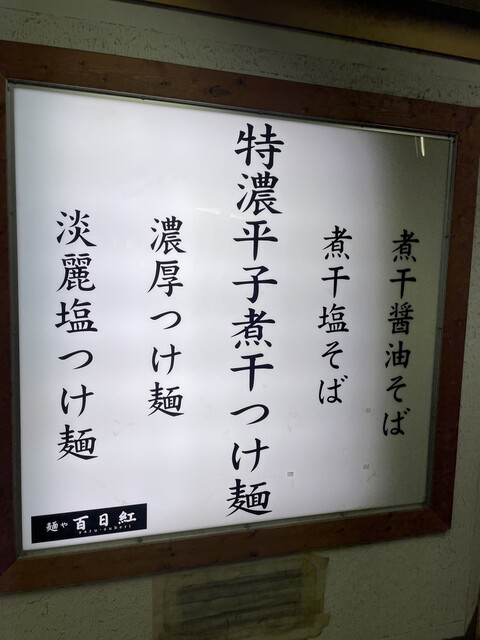 煮干醤油そば
煮干塩そば
特濃平子煮干つけ麺
濃厚つけ麺
淡麗塩つけ麺
麺や 百日紅
saru-suberi